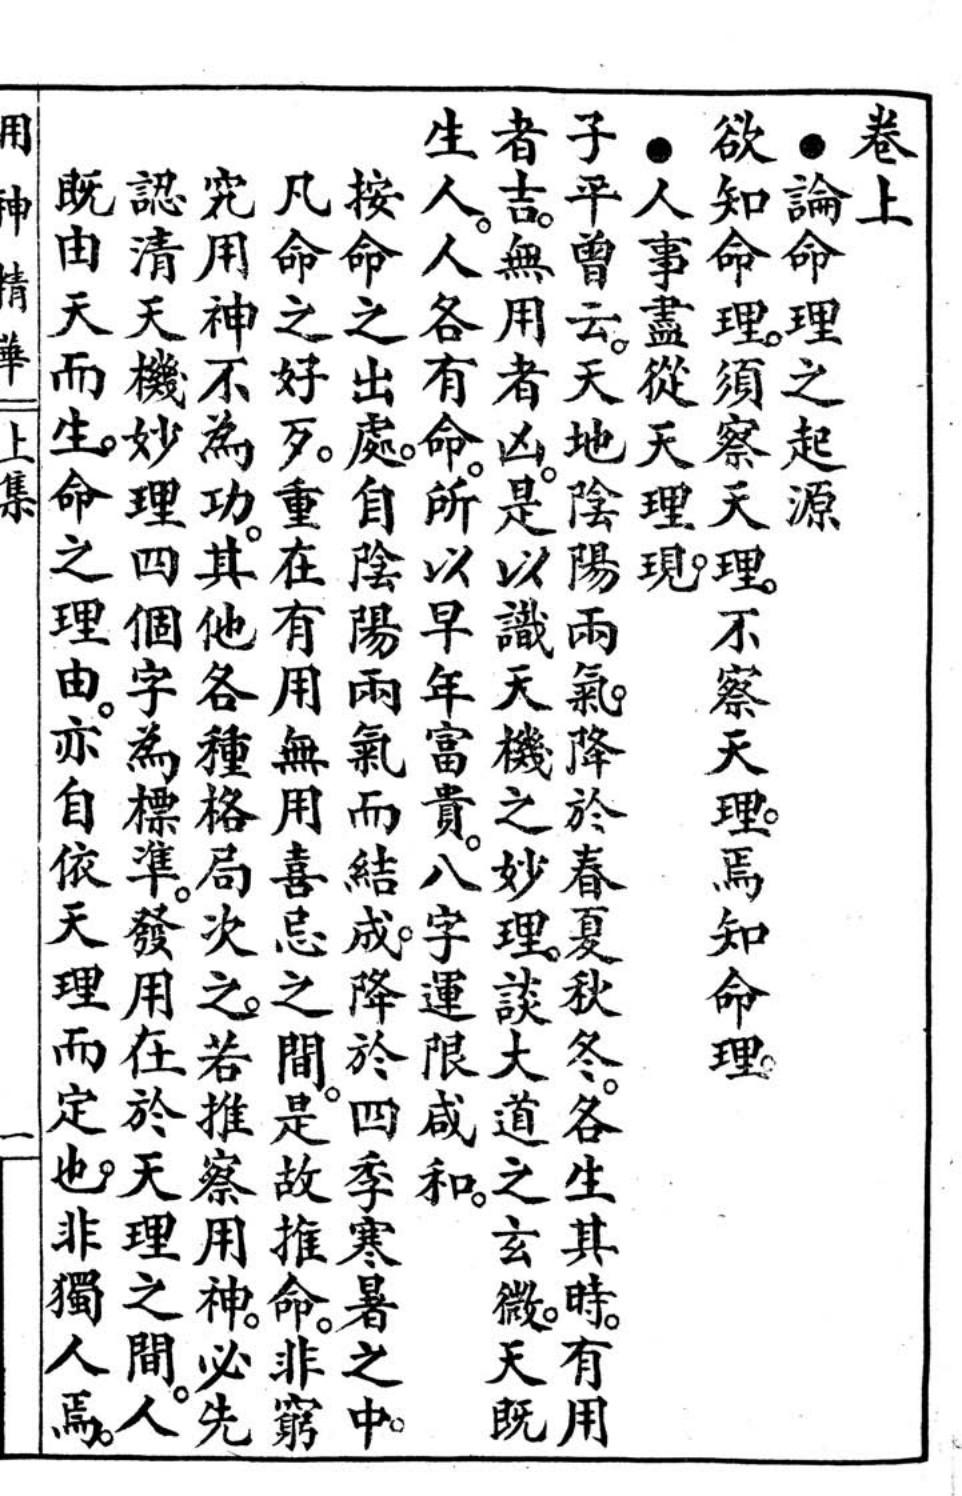 卷上
●論命理之起源
欲知命理。須察天理。不察天理。焉知命理。
●人事盡從天理現。
子平曾云。天地陰陽兩氣。降於春夏秋冬。各生其時。有用
者吉。無用者凶。是以識天機之妙理。談大道之玄微。天既
生人。人各有命。所以早年富貴。八字運限咸和。
按命之出處。自陰陽兩氣而結成。降於四季寒暑之中。
凡命之好歹。重在有用無用喜忌之間。是故推命。非窮
究用神不為功。其他各種格局次之。若推察用神。必先
認清天機妙理四個字為標準。發用在於天理之間。人
既由天而生。命之理由。亦自依天理而定也。非獨人焉。
用神精華 上集 一